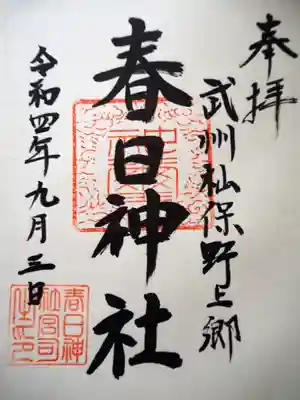 奉拝
武州私保野上郷
春日神社
令和四年九月三日
春日神
社宮司
之印